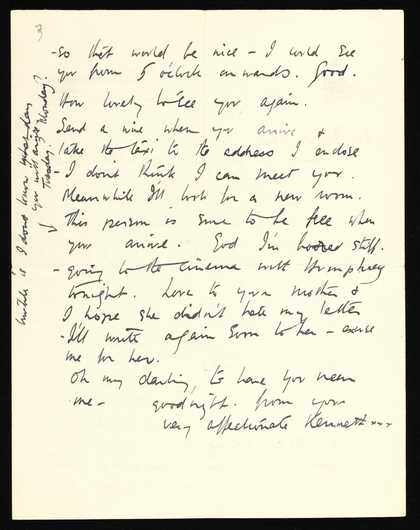 3
-so that would be nice - I could see
you from 5 o'clock onwards. Good.
How lovely to see you again.
Send a wire when you arrive &
take the taxi to the address I enclose
- I don't think I can meet you.
Meanwhile I'll look for a new room.
This person is sure to be free when
you arrive. God I'm bored stiff.
- going to the cinema with Humphrey
tonight. Love to your mother &
I hope she didn't hate my letter
- I'll write again soon to her - excuse
me for her.
Oh my darling, to have you near
me - goodnight. from your
very affectionate Kenneth xxx
is I don't know what day
you will arrive Monday?
Tuesday?